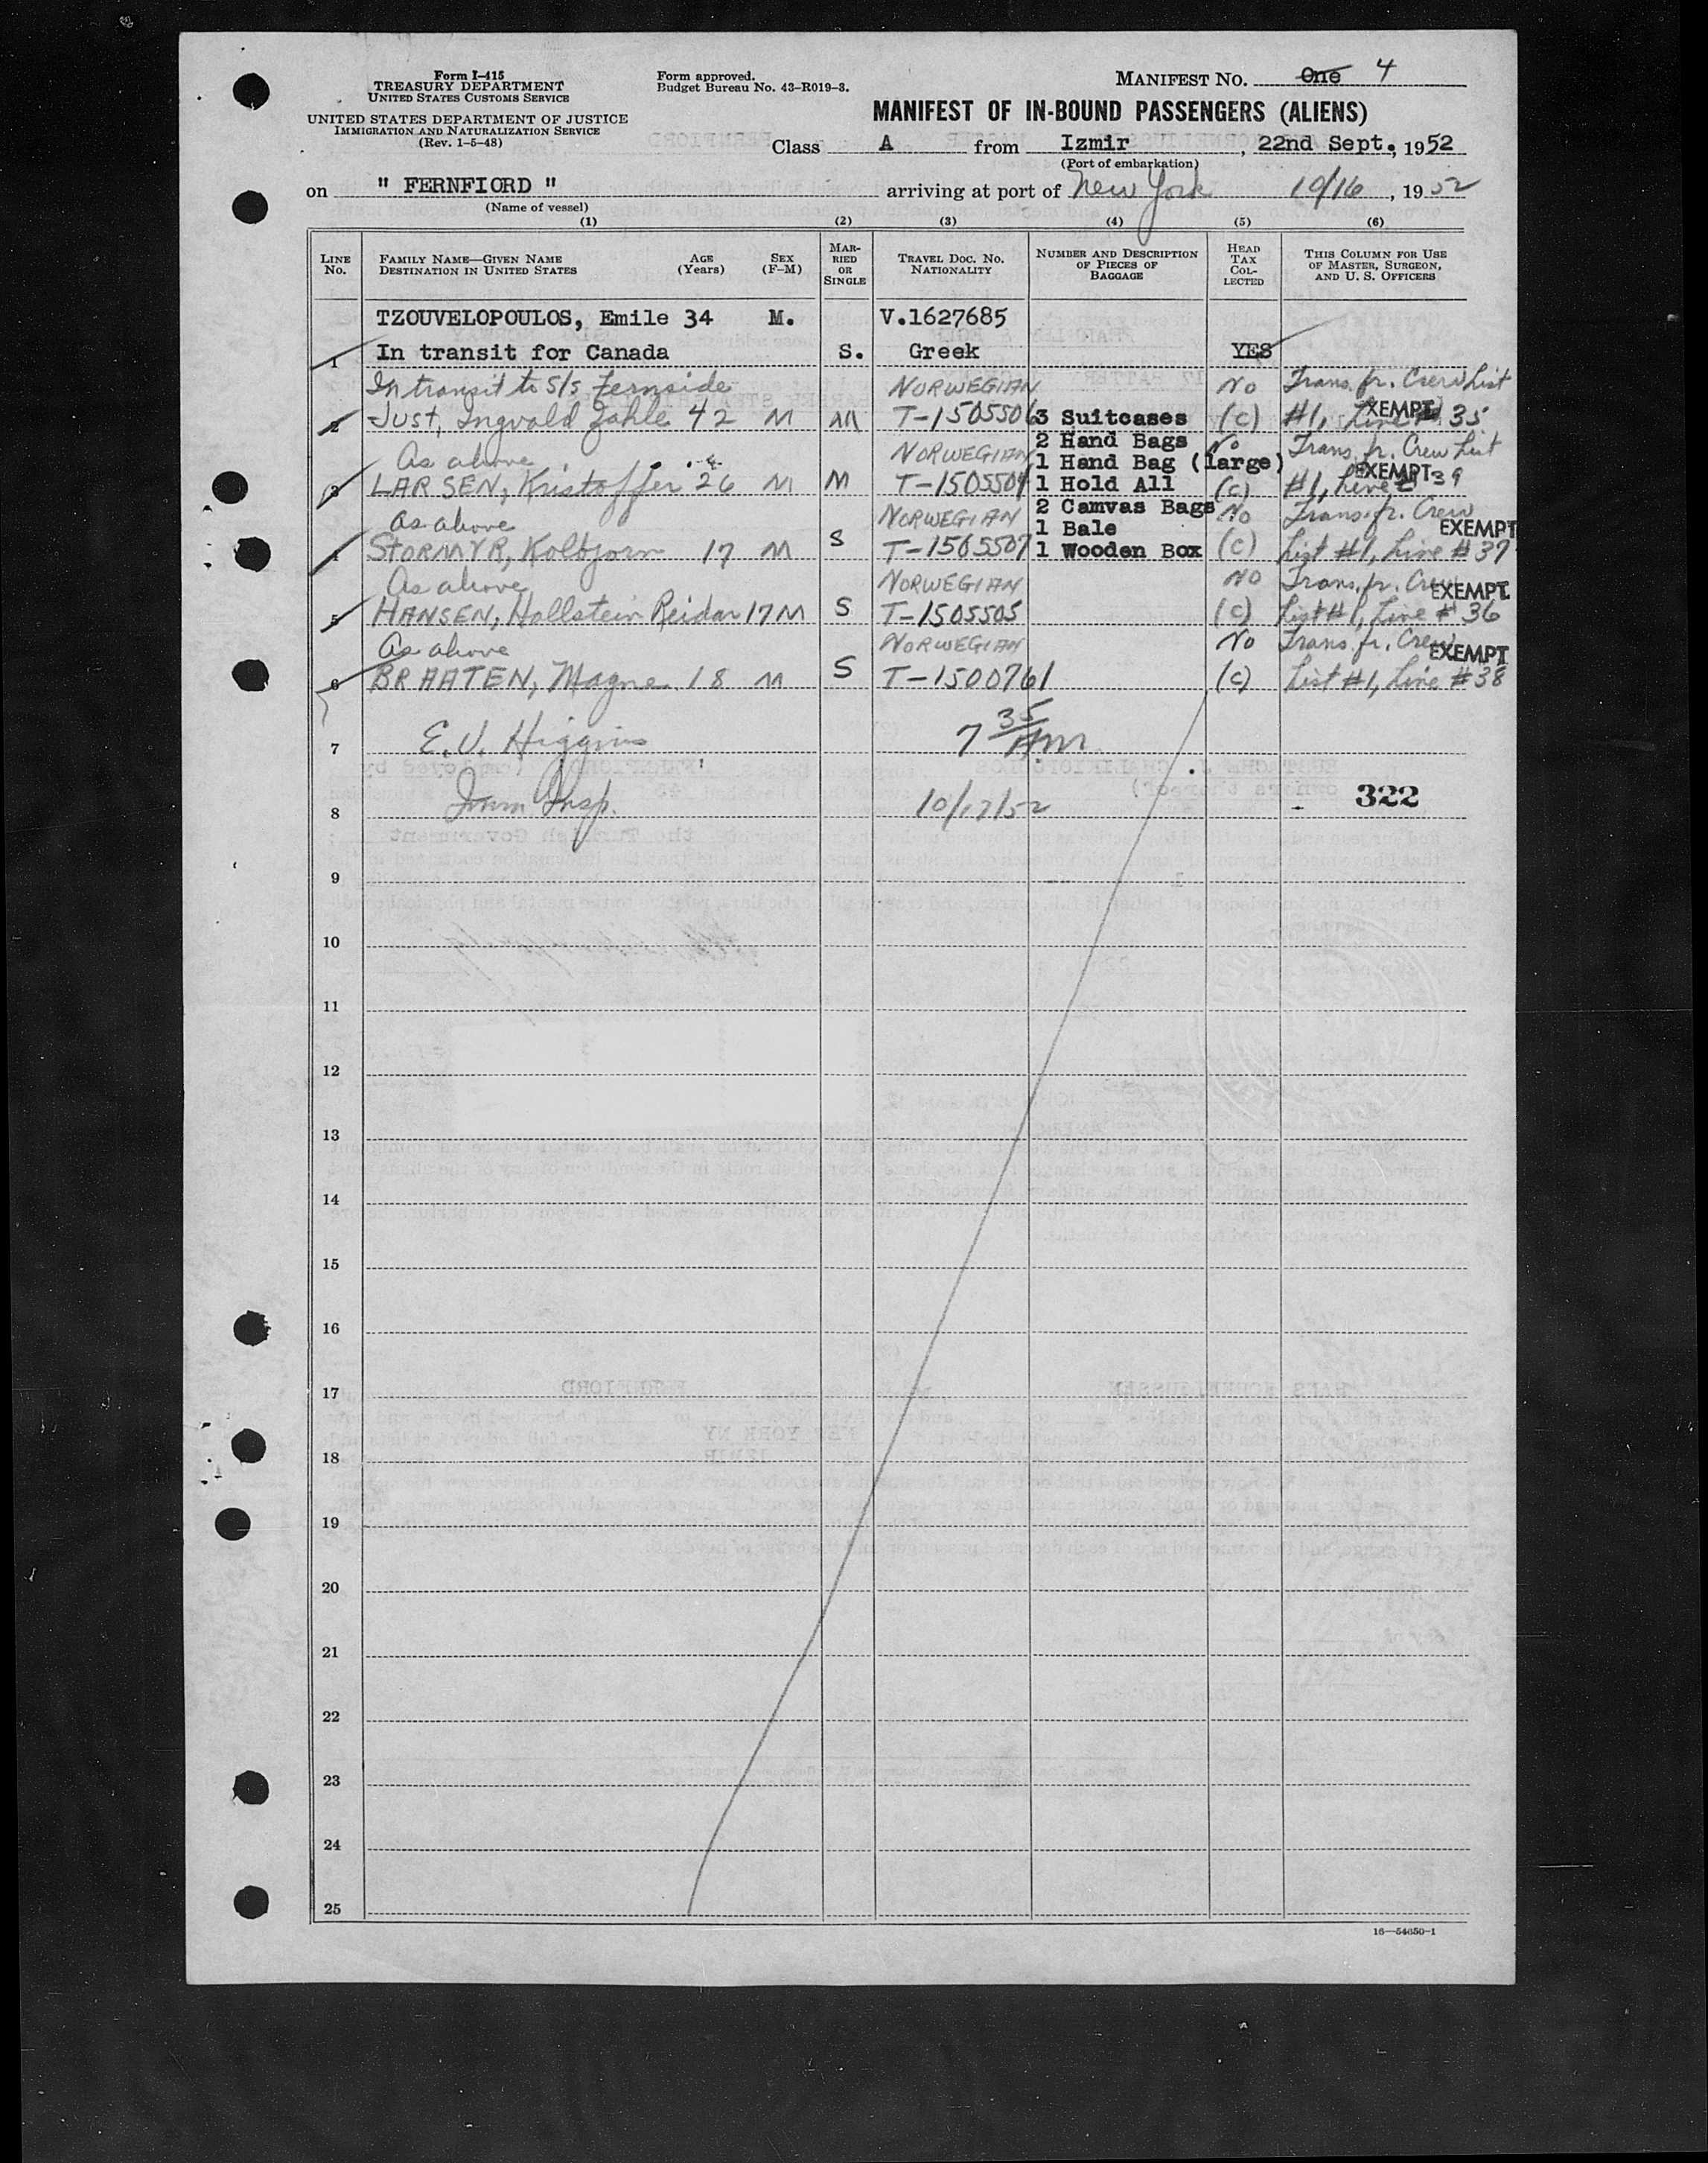 Form I-415
TREASURY DEPARTMENT
UNITED STATES CUSTOMS SERVICE
UNITED STATES DEPARTMENT OF JUSTICE
IMMIGRATION AND NATURALIZATION SERVICE
(Rev. 1-5-48)
Form approved.
Budget Bureau No. 43-R019-3.
MANIFEST NO. One 4
MANIFEST OF IN-BOUND PASSENGERS (ALIENS)
Class A from Izmir, 22nd Sept., 1952
(Port of embarkation)
on " FERNFIORD " arriving at port of New York 10/16, 1952
(Name of vessel)
(1) (2) (3) (4) (5) (6)
LINE No. FAMILY NAME—GIVEN NAME DESTINATION IN UNITED STATES AGE (Years) SEX (F-M) MARRIED OR SINGLE TRAVEL DOC. NO. NATIONALITY NUMBER AND DESCRIPTION OF PIECES OF BAGGAGE HEAD TAX COLLECTED THIS COLUMN FOR USE OF MASTER, SURGEON, AND U. S. OFFICERS
TZOUVELOPOULOS, Emile 34 M. V.1627685
1 In transit for Canada S. Greek YES
In transit to S/S Fernside NORWEGIAN No Trans. fr. Crew List
2 Just, Ingvald Zahle 42 M M T-1505506 3 Suitcases (c) #1, Line # 35 EXEMPT
As above NORWEGIAN 2 Hand Bags No Trans. fr. Crew List
1 Hand Bag (large)
3 LARSEN, Kristoffer 26 M M T-1505504 1 Hold All (c) #1, Line # 39 EXEMPT
As above NORWEGIAN 2 Camvas Bags No Trans. fr. Crew
1 Bale EXEMPT
4 STORMYR, Kolbjorn 17 M S T-1505507 1 Wooden Box (c) List #1, Line # 37
As above NORWEGIAN No Trans. fr. Crew EXEMPT
5 HANSEN, Hallstein Reidar 17 M S T-1505505 (c) List #1, Line # 36
As above NORWEGIAN No Trans. fr. Crew EXEMPT
6 BRAATEN, Magne 18 M S T-1500761 (c) List #1, Line #38
7 E.V. Higgins 7 35 Am
8 Imm Insp. 10/17/52 322
9
10
11
12
13
14
15
16
17
18
19
20
21
22
23
24
25
16—54650-1